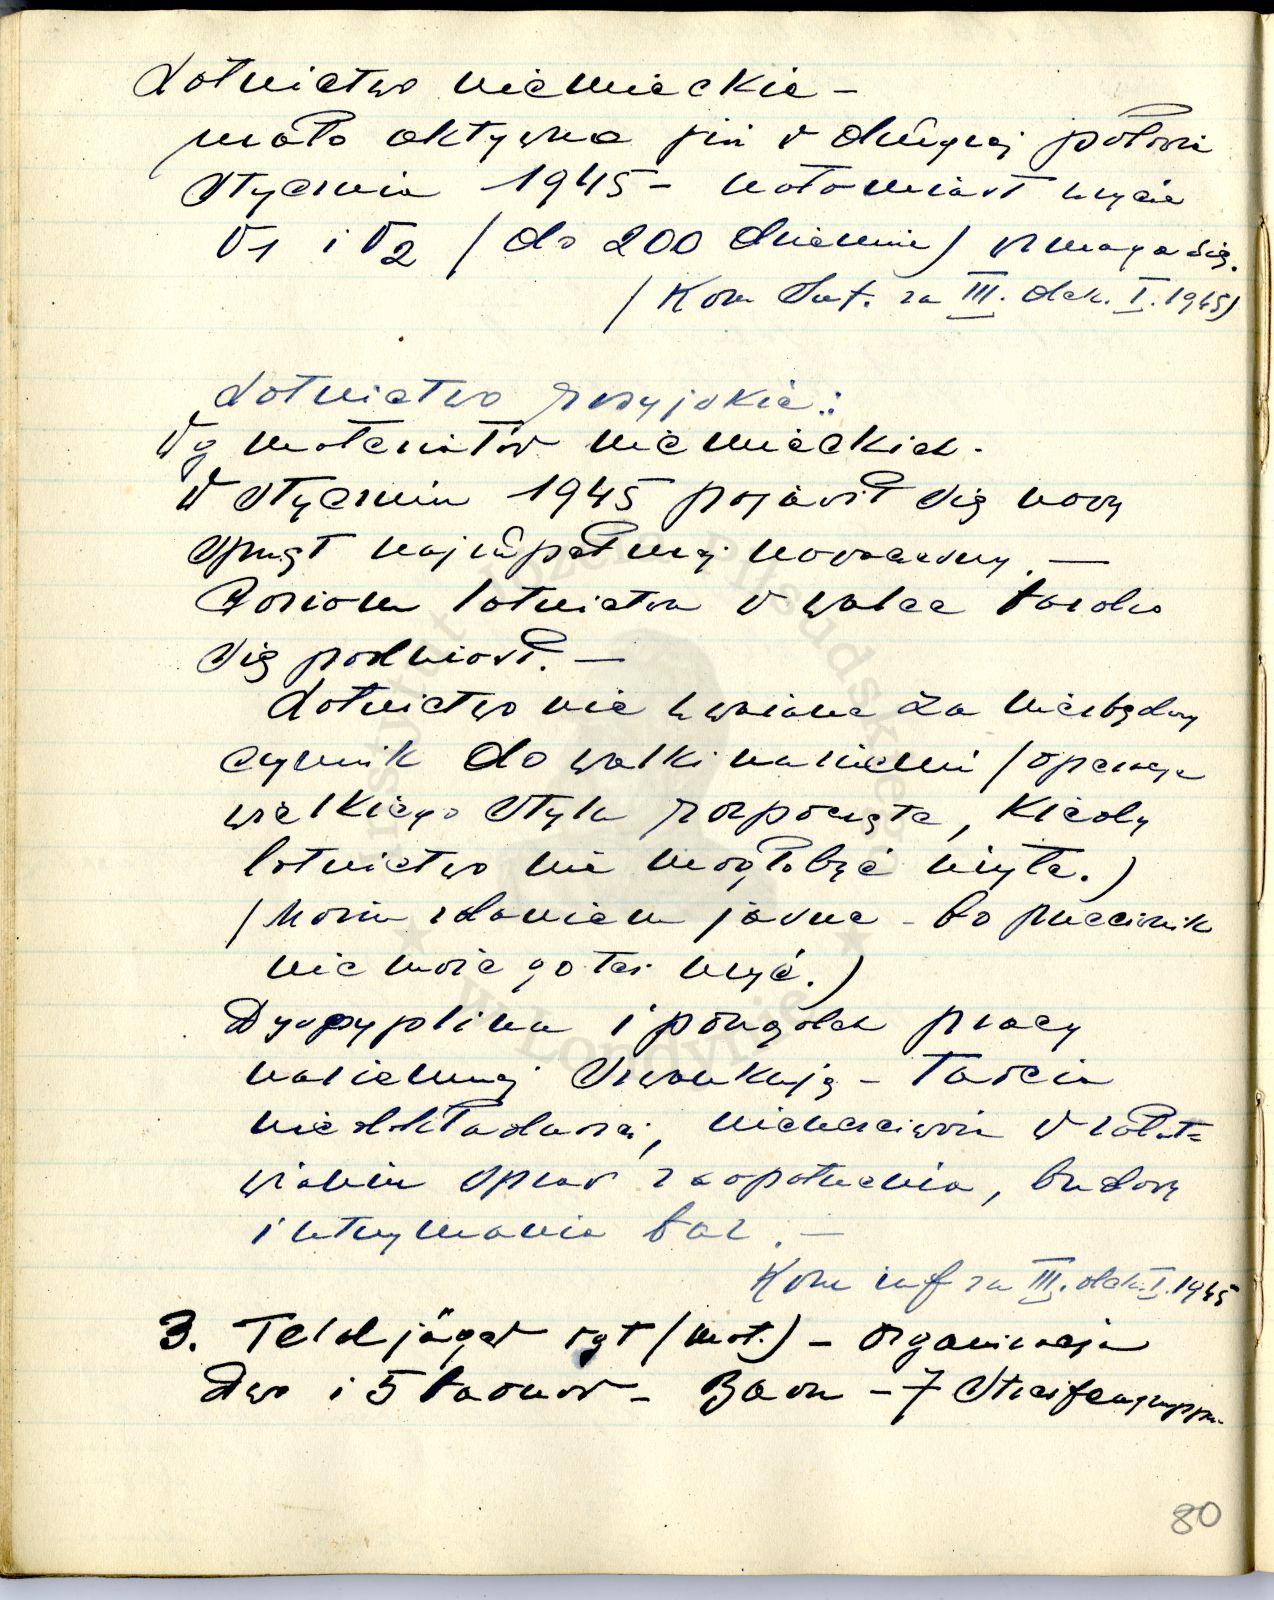 Lotnictwo niemieckie –
mało aktywne już w drugiej połowie
stycznia 1945 – natomiast użycie
V1 i V2 (do 200 dziennie) wzmaga się.
(Kom Inf. za III. dek. I. 1945)
Lotnictwo rosyjskie:
Wg materiałów niemieckich.
W styczniu 1945 pojawił się nowy
sprzęt najzupełniej nowoczesny. —
Poziom lotnictwa w walce bardzo
się podniósł. —
Lotnictwo nie uważane za niezbędny
czynnik do walki na ziemi (operacje
wielkiego stylu rozpoczęte, kiedy
lotnictwo nie mogło być użyte.)
(Moim zdaniem jasne – bo przeciwnik
nie może go też użyć.)
Dyscyplina i porządek pracy
naziemnej szwankują – tarcia
niedokładności, nieuczciwości w załat=
wianiu spraw zaopatrzenia, budowy
i utrzymania baz. —
Kom inf za III. dek. I. 1945
3. Feldjäger rgt (mot.) – organizacja
Dwo i 5 baonów – Baon – 7 Streifengruppen
80
Instytut Józefa Piłsudskiego
w Londynie